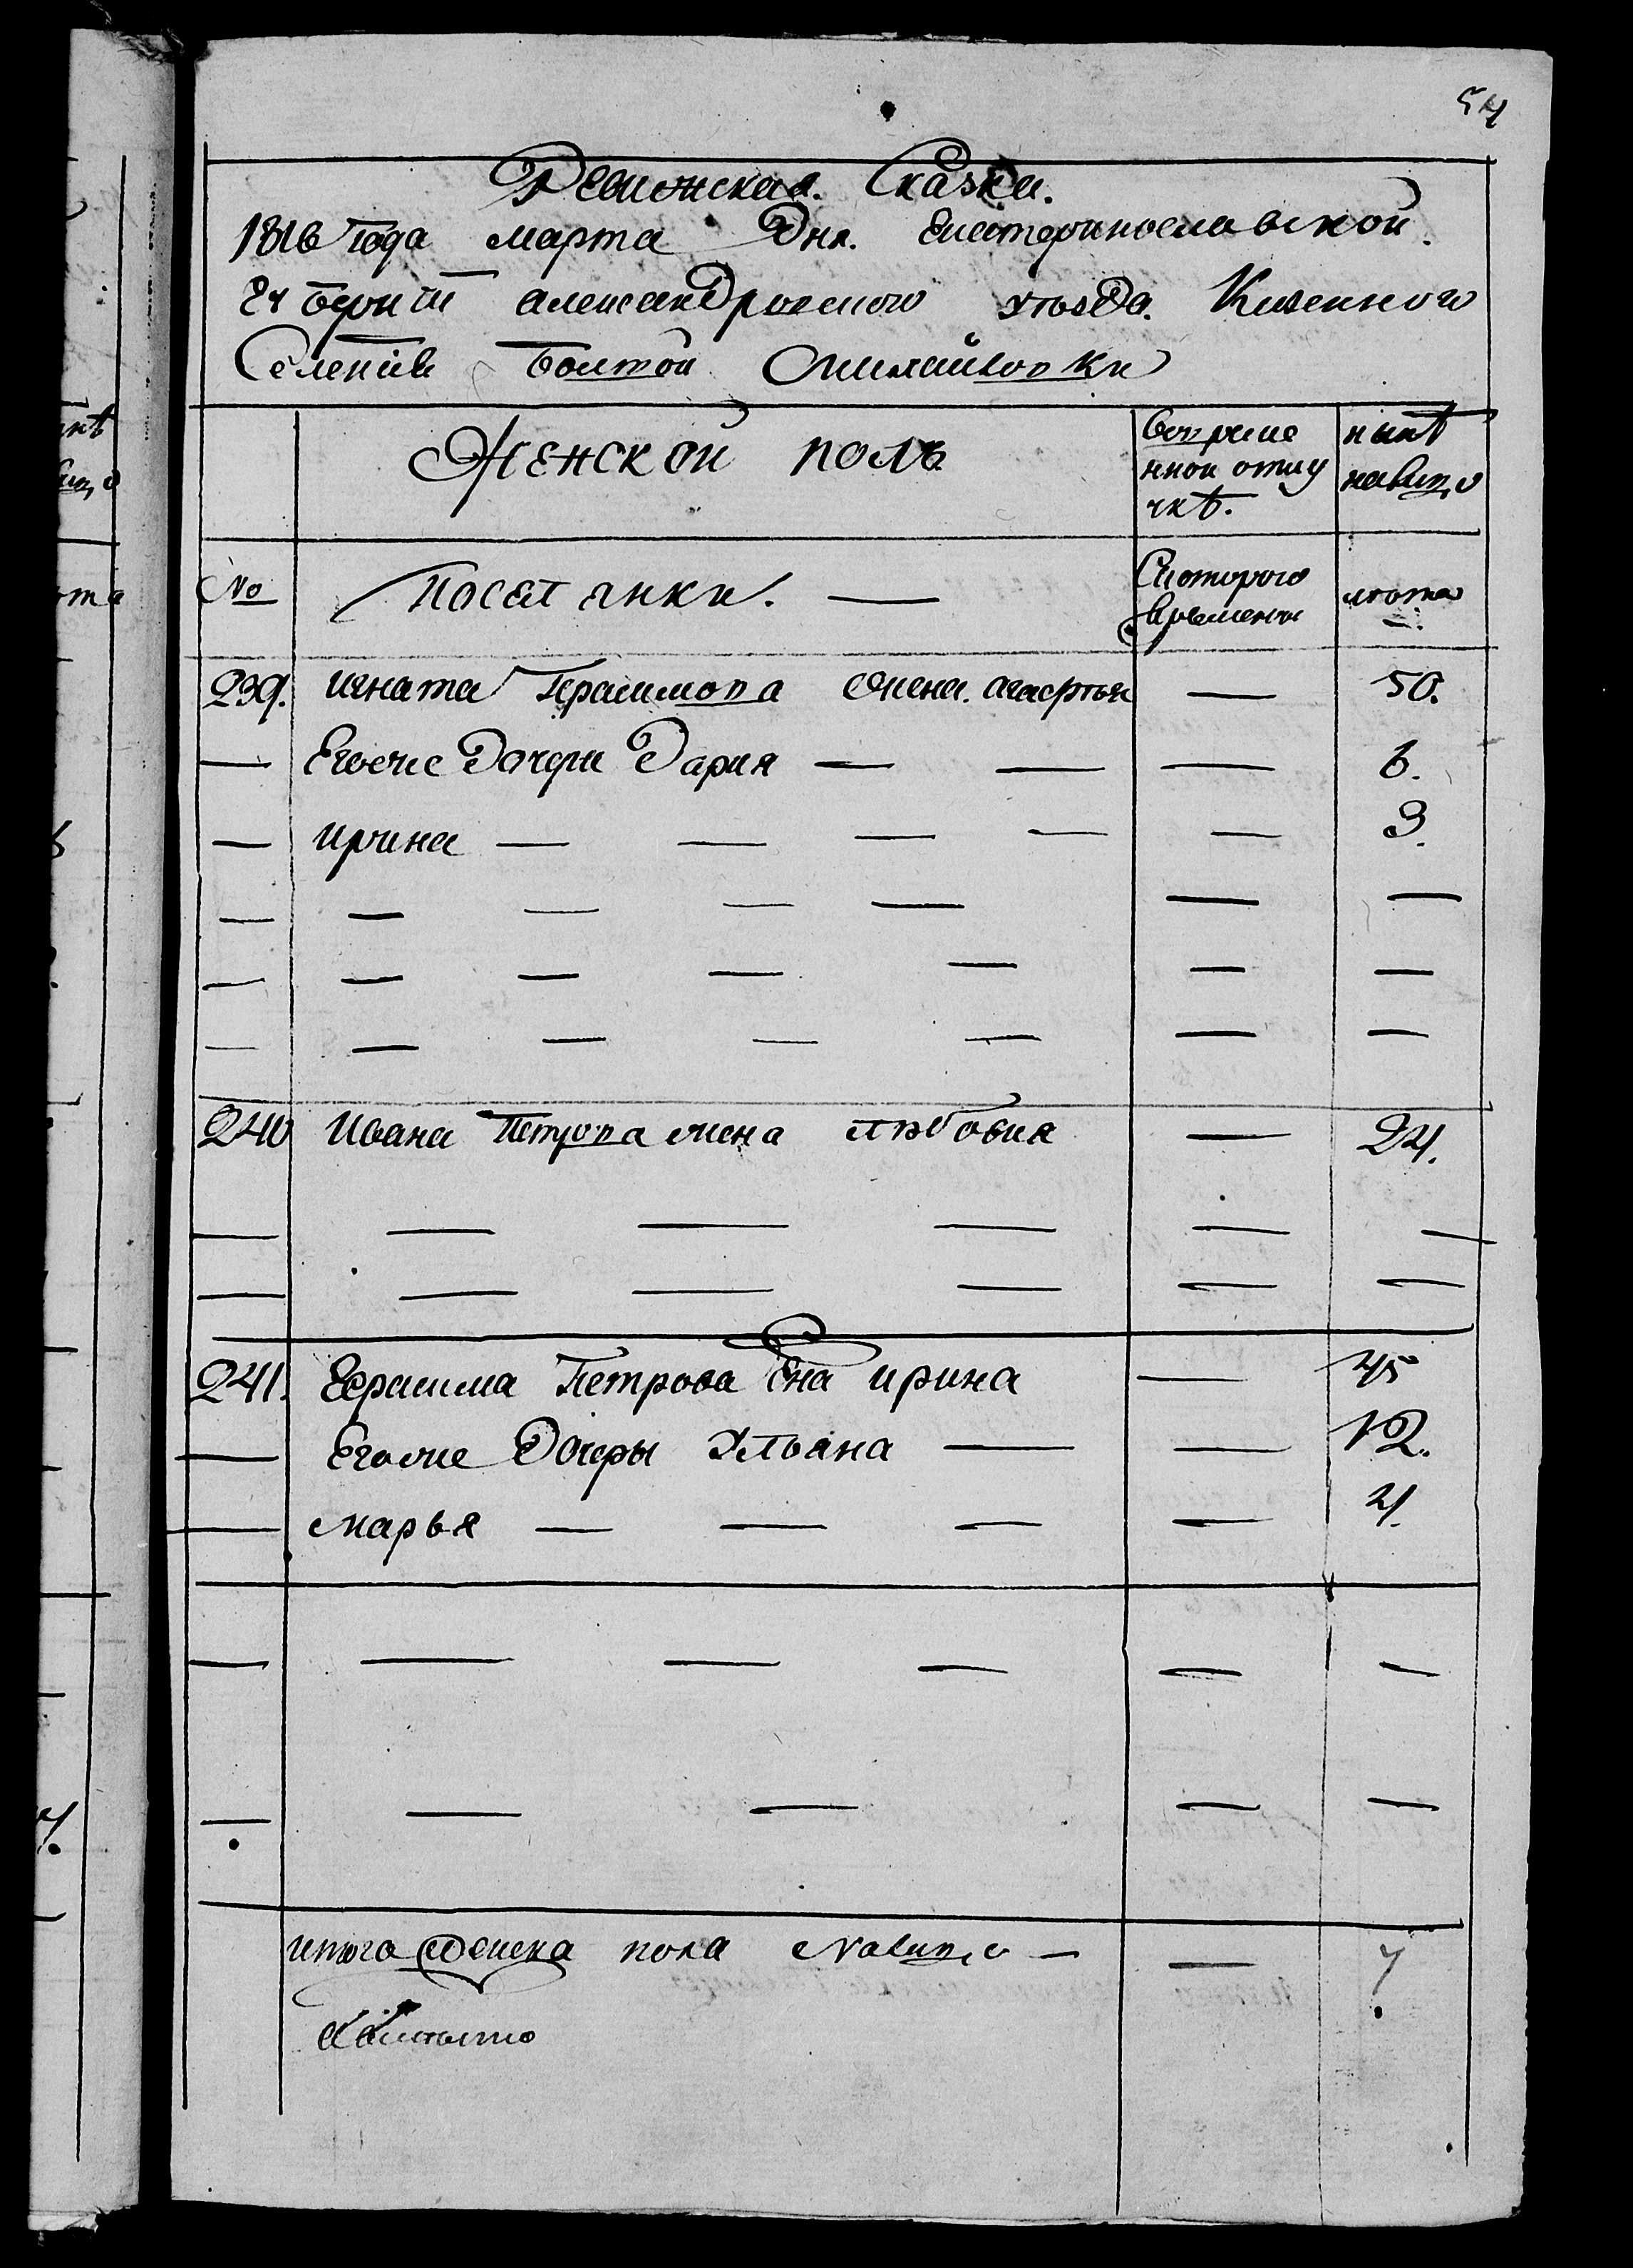 54
Ревижская. Сказка.
1816 года марта Дня. Екатеринославской.
Губернiи александровского уѣзда. Казенного
Селенiя Болшой Михайловки
Женской полъ
вовреме
нной отлу
чкѣ.
нынѣ
налицо
№
Поселянки. —
Скоторого
времени
лѣта
239. игната Герасимова жена. агафья — 50.
— Егоже Дочери Дария — — — 6.
— ирина — — — — — 3.
— — — — — — —
— — — — — — —
— — — — — — —
240 Ивана Петрова жена любовия — 24.
— — — — — —
— — — — — —
241. Герасима Петрова жена ирина — 45
— Егоже Дочеры Ульяна — — 12.
— марья — — — — 4.
— — — — — —
— — — — —
итого женска пола налицо — — 7